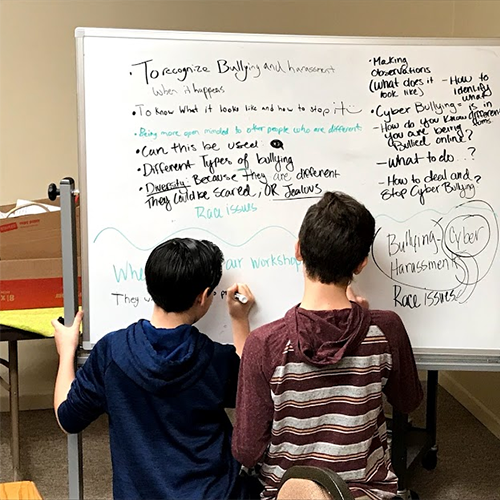 • To recognize Bullying and harassment
when it happens
• To know what it looks like and how to stop it
• Being more open minded to other people who are different
• Can this be used
• Different Types of bullying
• Diversity: Because They are different
They could be scared, OR Jealous
Race issues
our workshop
They
• Making
observations
(what does it
look like)
- How to
identify
what
• Cyber Bullying = is in
different
forms
- How do you know
you are being
Bullied online?
- what to do...?
- How to deal and
Stop Cyber Bullying?
Bullying
Cyber
Harassment
Race issues